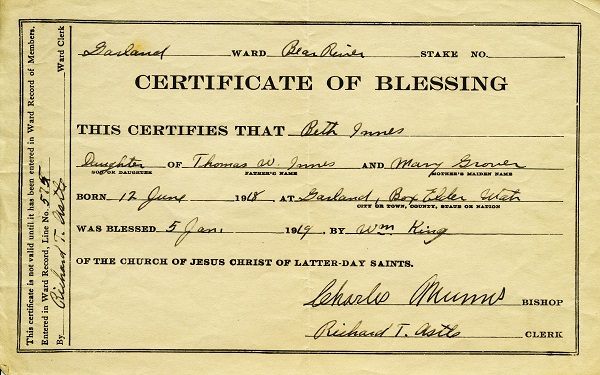 Garland WARD Bear River STAKE NO.
CERTIFICATE OF BLESSING
THIS CERTIFIES THAT Beth Innes
Daughter OF Thomas W. Innes AND Mary Grover
SON OR DAUGHTER FATHER'S NAME MOTHER'S MAIDEN NAME
BORN 12 June 1918 AT Garland, Box Elder Utah
CITY OR TOWN, COUNTY, STATE OR NATION
WAS BLESSED 5 Jan. 1919, BY Wm King
OF THE CHURCH OF JESUS CHRIST OF LATTER-DAY SAINTS.
Charles BISHOP
Richard T. Astle CLERK
This certificate is not valid until it has been entered in Ward Record of Members.
Entered in Ward Record, Line No. 575
By Richard T. Astle Ward Clerk